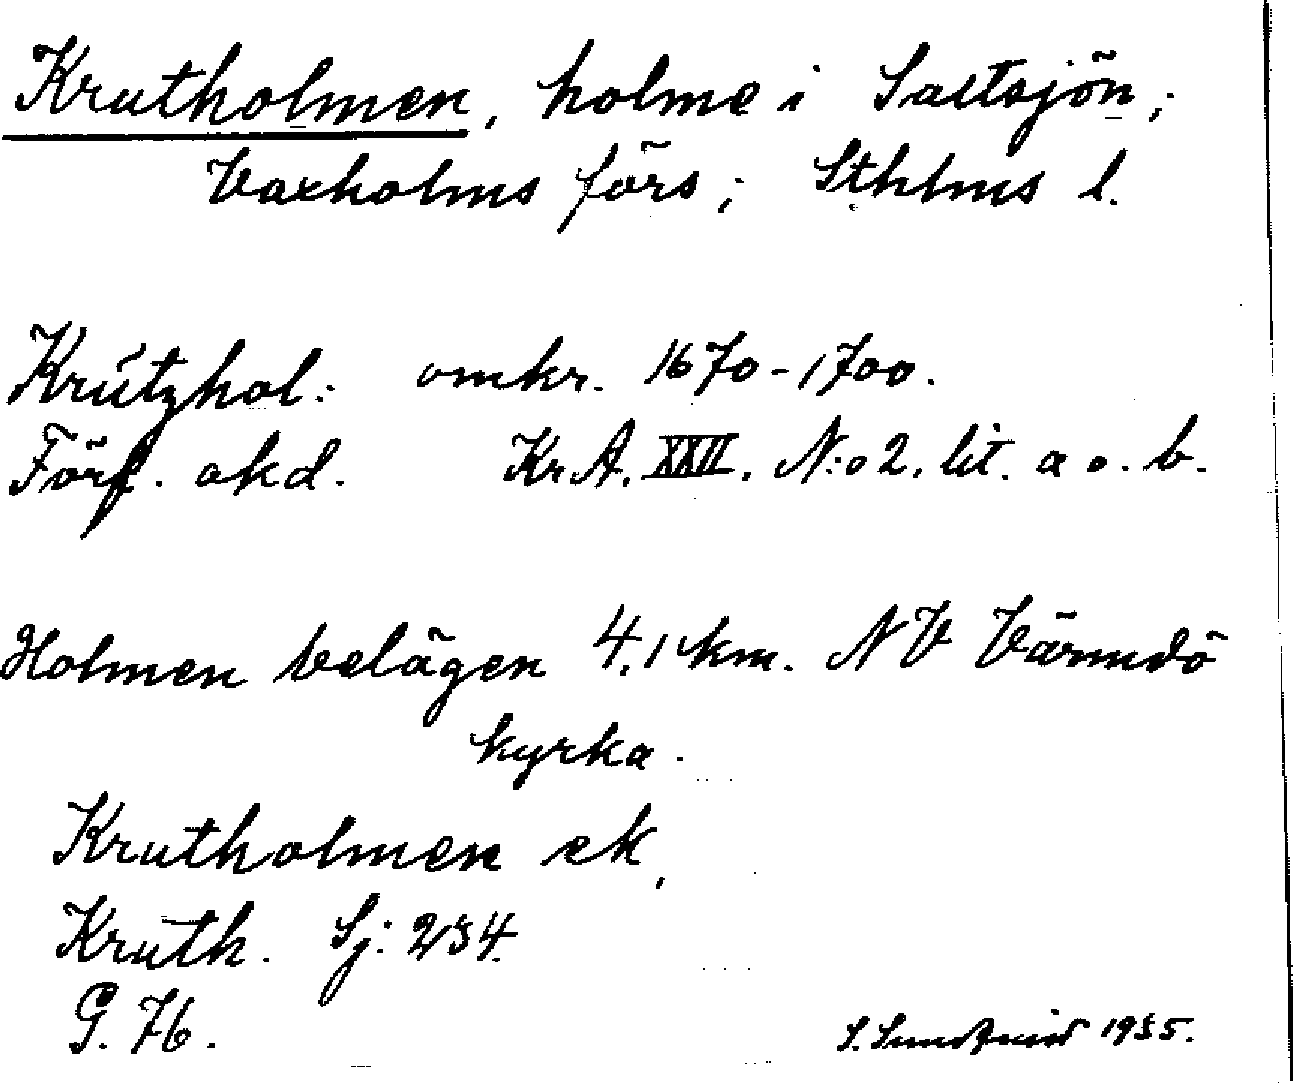 Krutholmen, holme i Saltsjön,
Vaxholms förs; Sthlms l.
Krútzhol: omkr. 1670-1700.
Förf. okd. KrA. XXII. N:o 2. lit. a o. b.
Holmen belägen 4,1 km. NV Värmdö
kyrka.
Krutholmen ek,
Kruth. Sj: 234.
G. 76.
S. Sundqvist 1935.